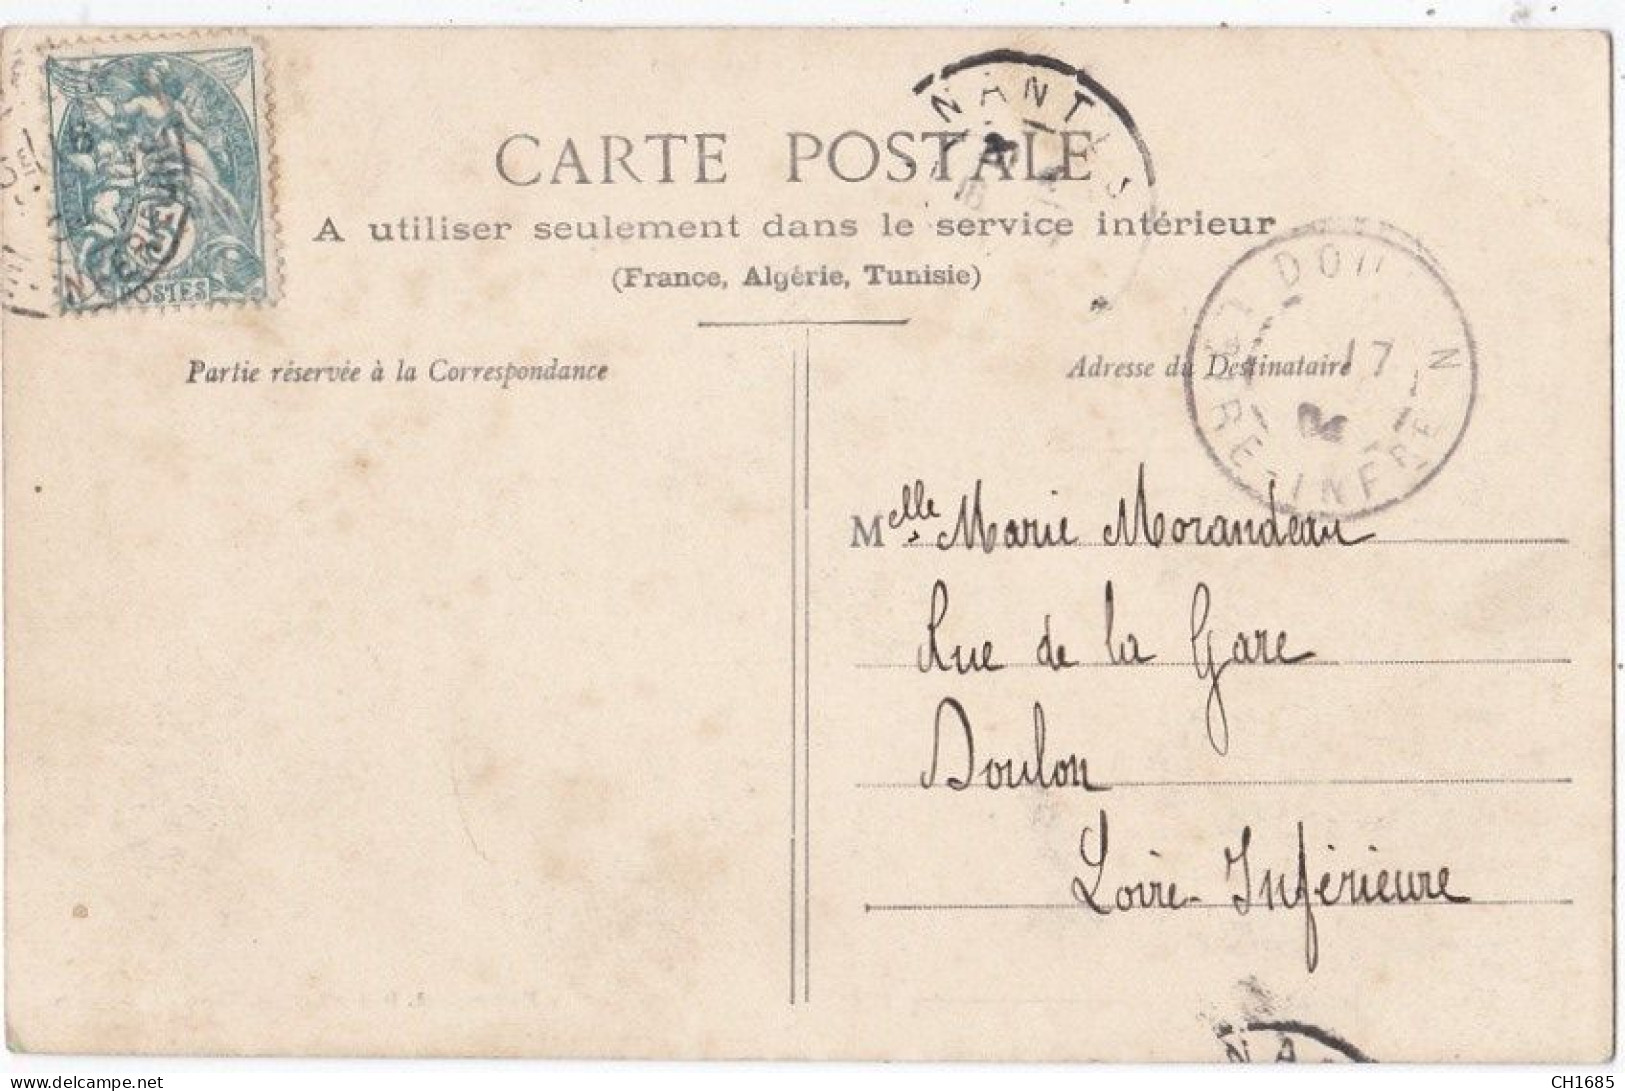 CARTE POSTALE
A utiliser seulement dans le service intérieur
(France, Algérie, Tunisie)
NANTES
POSTES
DOU
17
RE-INFRE
Partie réservée à la Correspondance
Adresse du Destinataire
Melle Marie Morandeau
Rue de la Gare
Doulon
Loire-Inférieure
NA
delcampe.net
CH1685